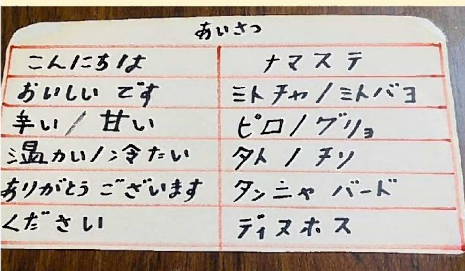 あいさつ
こんにちは ナマステ
おいしい です ミトチャ/ミトバヨ
辛い/甘い ピロ/グリョ
温かい/冷たい タト/チソ
ありがとう ございます タンニャ バード
ください ディヌホス